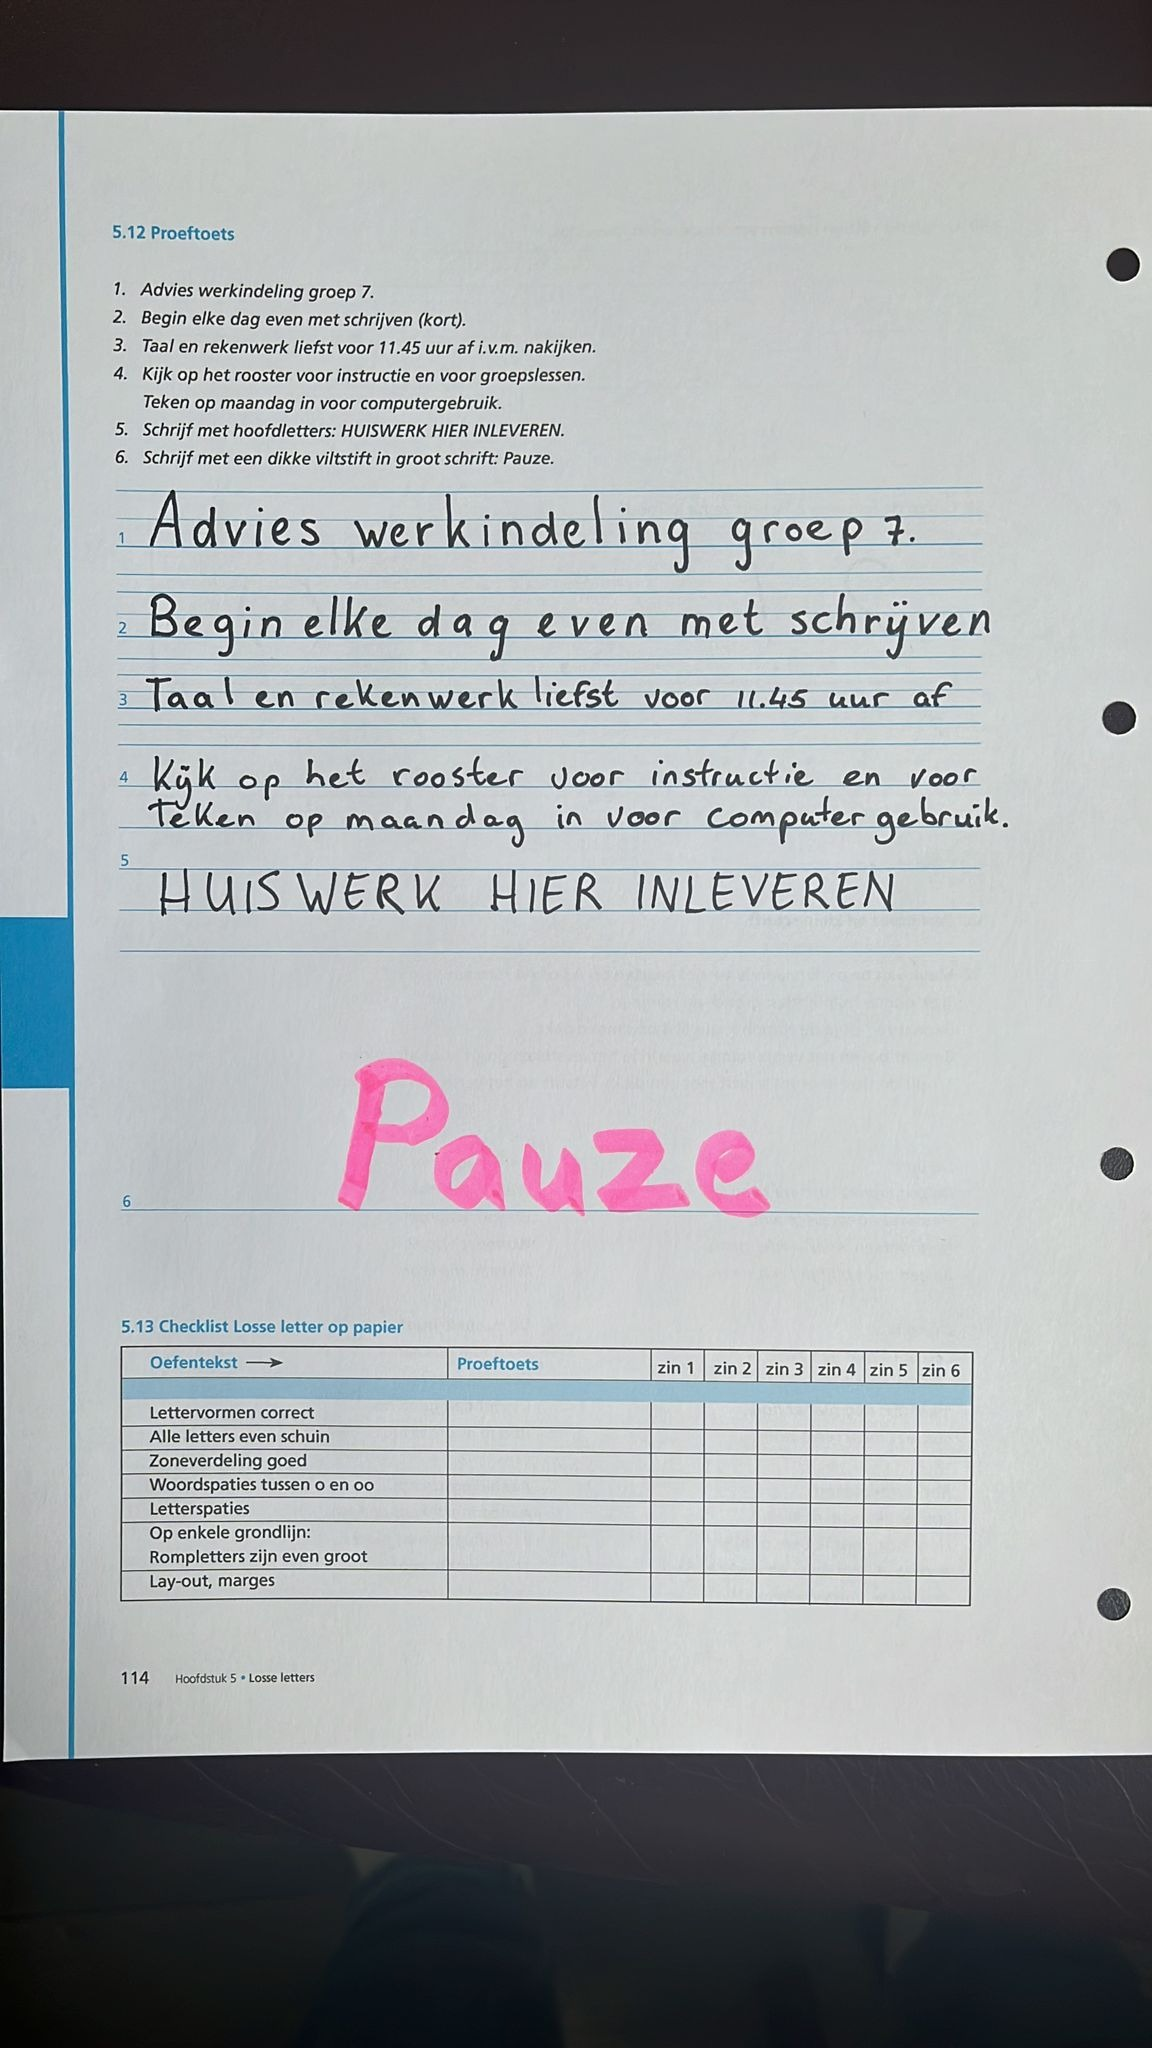 5.12 Proeftoets
1. Advies werkindeling groep 7.
2. Begin elke dag even met schrijven (kort).
3. Taal en rekenwerk liefst voor 11.45 uur af i.v.m. nakijken.
4. Kijk op het rooster voor instructie en voor groepslessen.
Teken op maandag in voor computergebruik.
5. Schrijf met hoofdletters: HUISWERK HIER INLEVEREN.
6. Schrijf met een dikke viltstift in groot schrift: Pauze.
1 Advies werkindeling groep 7.
2 Begin elke dag even met schrijven
3 Taal en rekenwerk liefst voor 11.45 uur af
4 Kijk op het rooster voor instructie en voor
Teken op maandag in voor computergebruik.
5
HUISWERK HIER INLEVEREN
6 Pauze
5.13 Checklist Losse letter op papier
Oefentekst → Proeftoets zin 1 zin 2 zin 3 zin 4 zin 5 zin 6
Lettervormen correct
Alle letters even schuin
Zoneverdeling goed
Woordspaties tussen o en oo
Letterspaties
Op enkele grondlijn:
Rompletters zijn even groot
Lay-out, marges
114 Hoofdstuk 5 • Losse letters